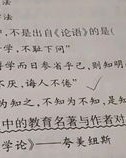 法
中,不是出自《论语》的是(
学,不耻下问”
君子博学而日参省乎己,则知明
不厌,诲人不倦”
为知之,不知为不知,是知
中的教育名著与作者对
学论》——夸美纽斯